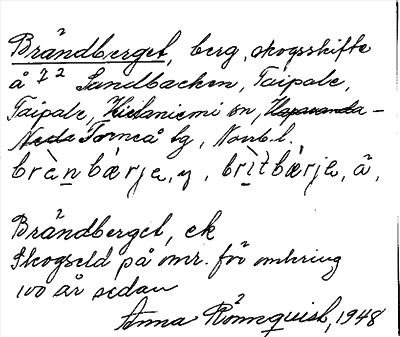 Brändberget, berg, skogsskifte
å 72 Sandbacken, Taipale,
Taipale, Hietaniemi sn, Haparanda-
Nede Torneå tg, Norrb.l.
brànbárje, y, brìtbárje, ä,
Brändberget, ek
Skogseld på omr. för omkring
100 år sedan
Anna Rönnquist, 1948